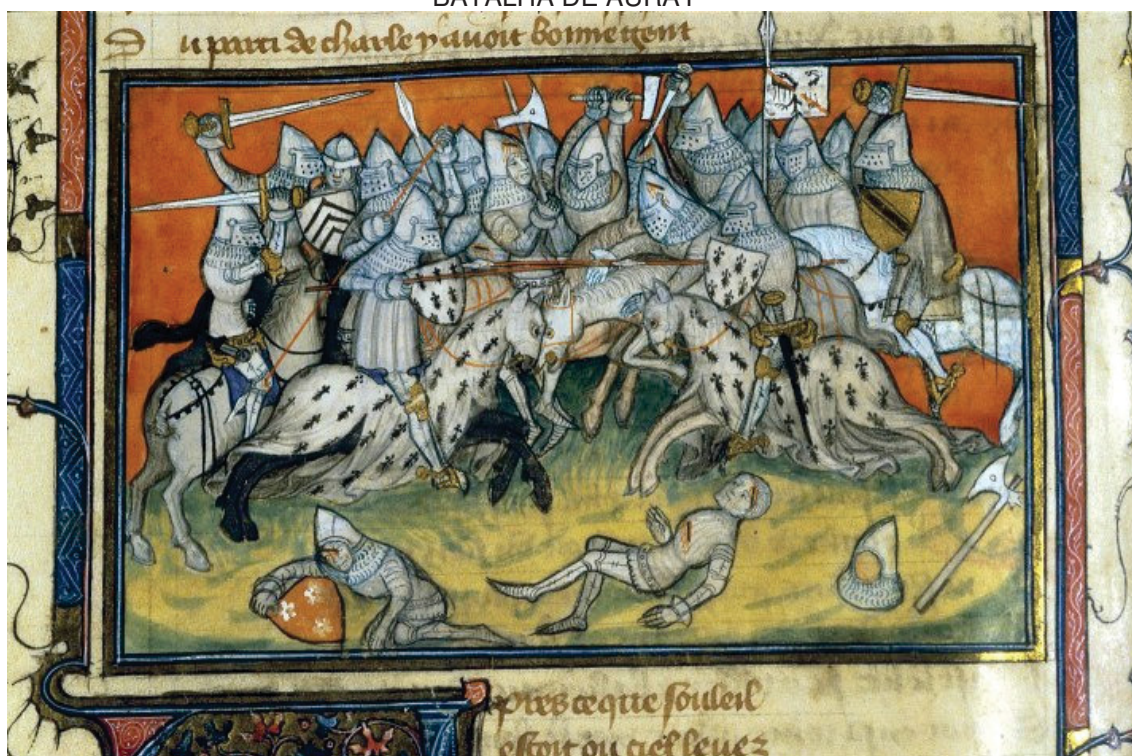 BATALHA DE AURAY
Du parti de charle y avoit bonne gent
pres ce que souleil
estoit ou ciel levez